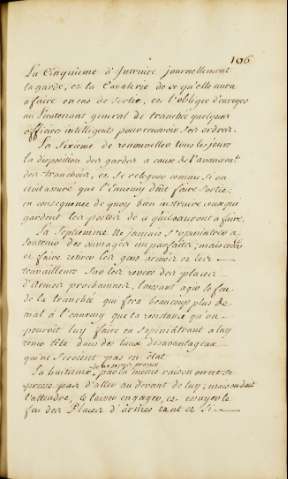 106
La Cinquieme d'Instruire journellement
la garde, et la Cavalerie de ce qu'elle aura
a faire en cas de sortie, et l'oblige d'envoyer
au Lieutenant general de tranchée quelques
officiers intelligents pour recevoir ses ordres.
La Sixieme de renouveller tous les jours
la disposition des gardes a cause de l'avancement
des tranchées, et se relegues comme si on
etoit assuré que l'Ennemy dût faire Sortie,
en consequence de quoy bien instruire ceux qui
gardent les postes de ce qu'ils auront a faire.
La Septieme Ne jamais s'opiniatrer a
soutenir des ouvrages imparfaits, mais ceder
et faire retirer les gens armés et les
travailleurs sur les revers des places
d'Armes prochaines, laissant agir le feu
de la tranchée qui fera beaucoup plus de
mal a l'ennemy que la resistance qu'on
pourroit luy faire en s'opiniatrant a luy
tenir tête dans des lieux desavantageux
qui ne seroient pas en etat
La huitieme, par la même raison on ne se
presse pas d'aller au devant de luy; mais on doit
l'attendre, le laisser engager, et essuyer le
feu des Places d'armes tant et si